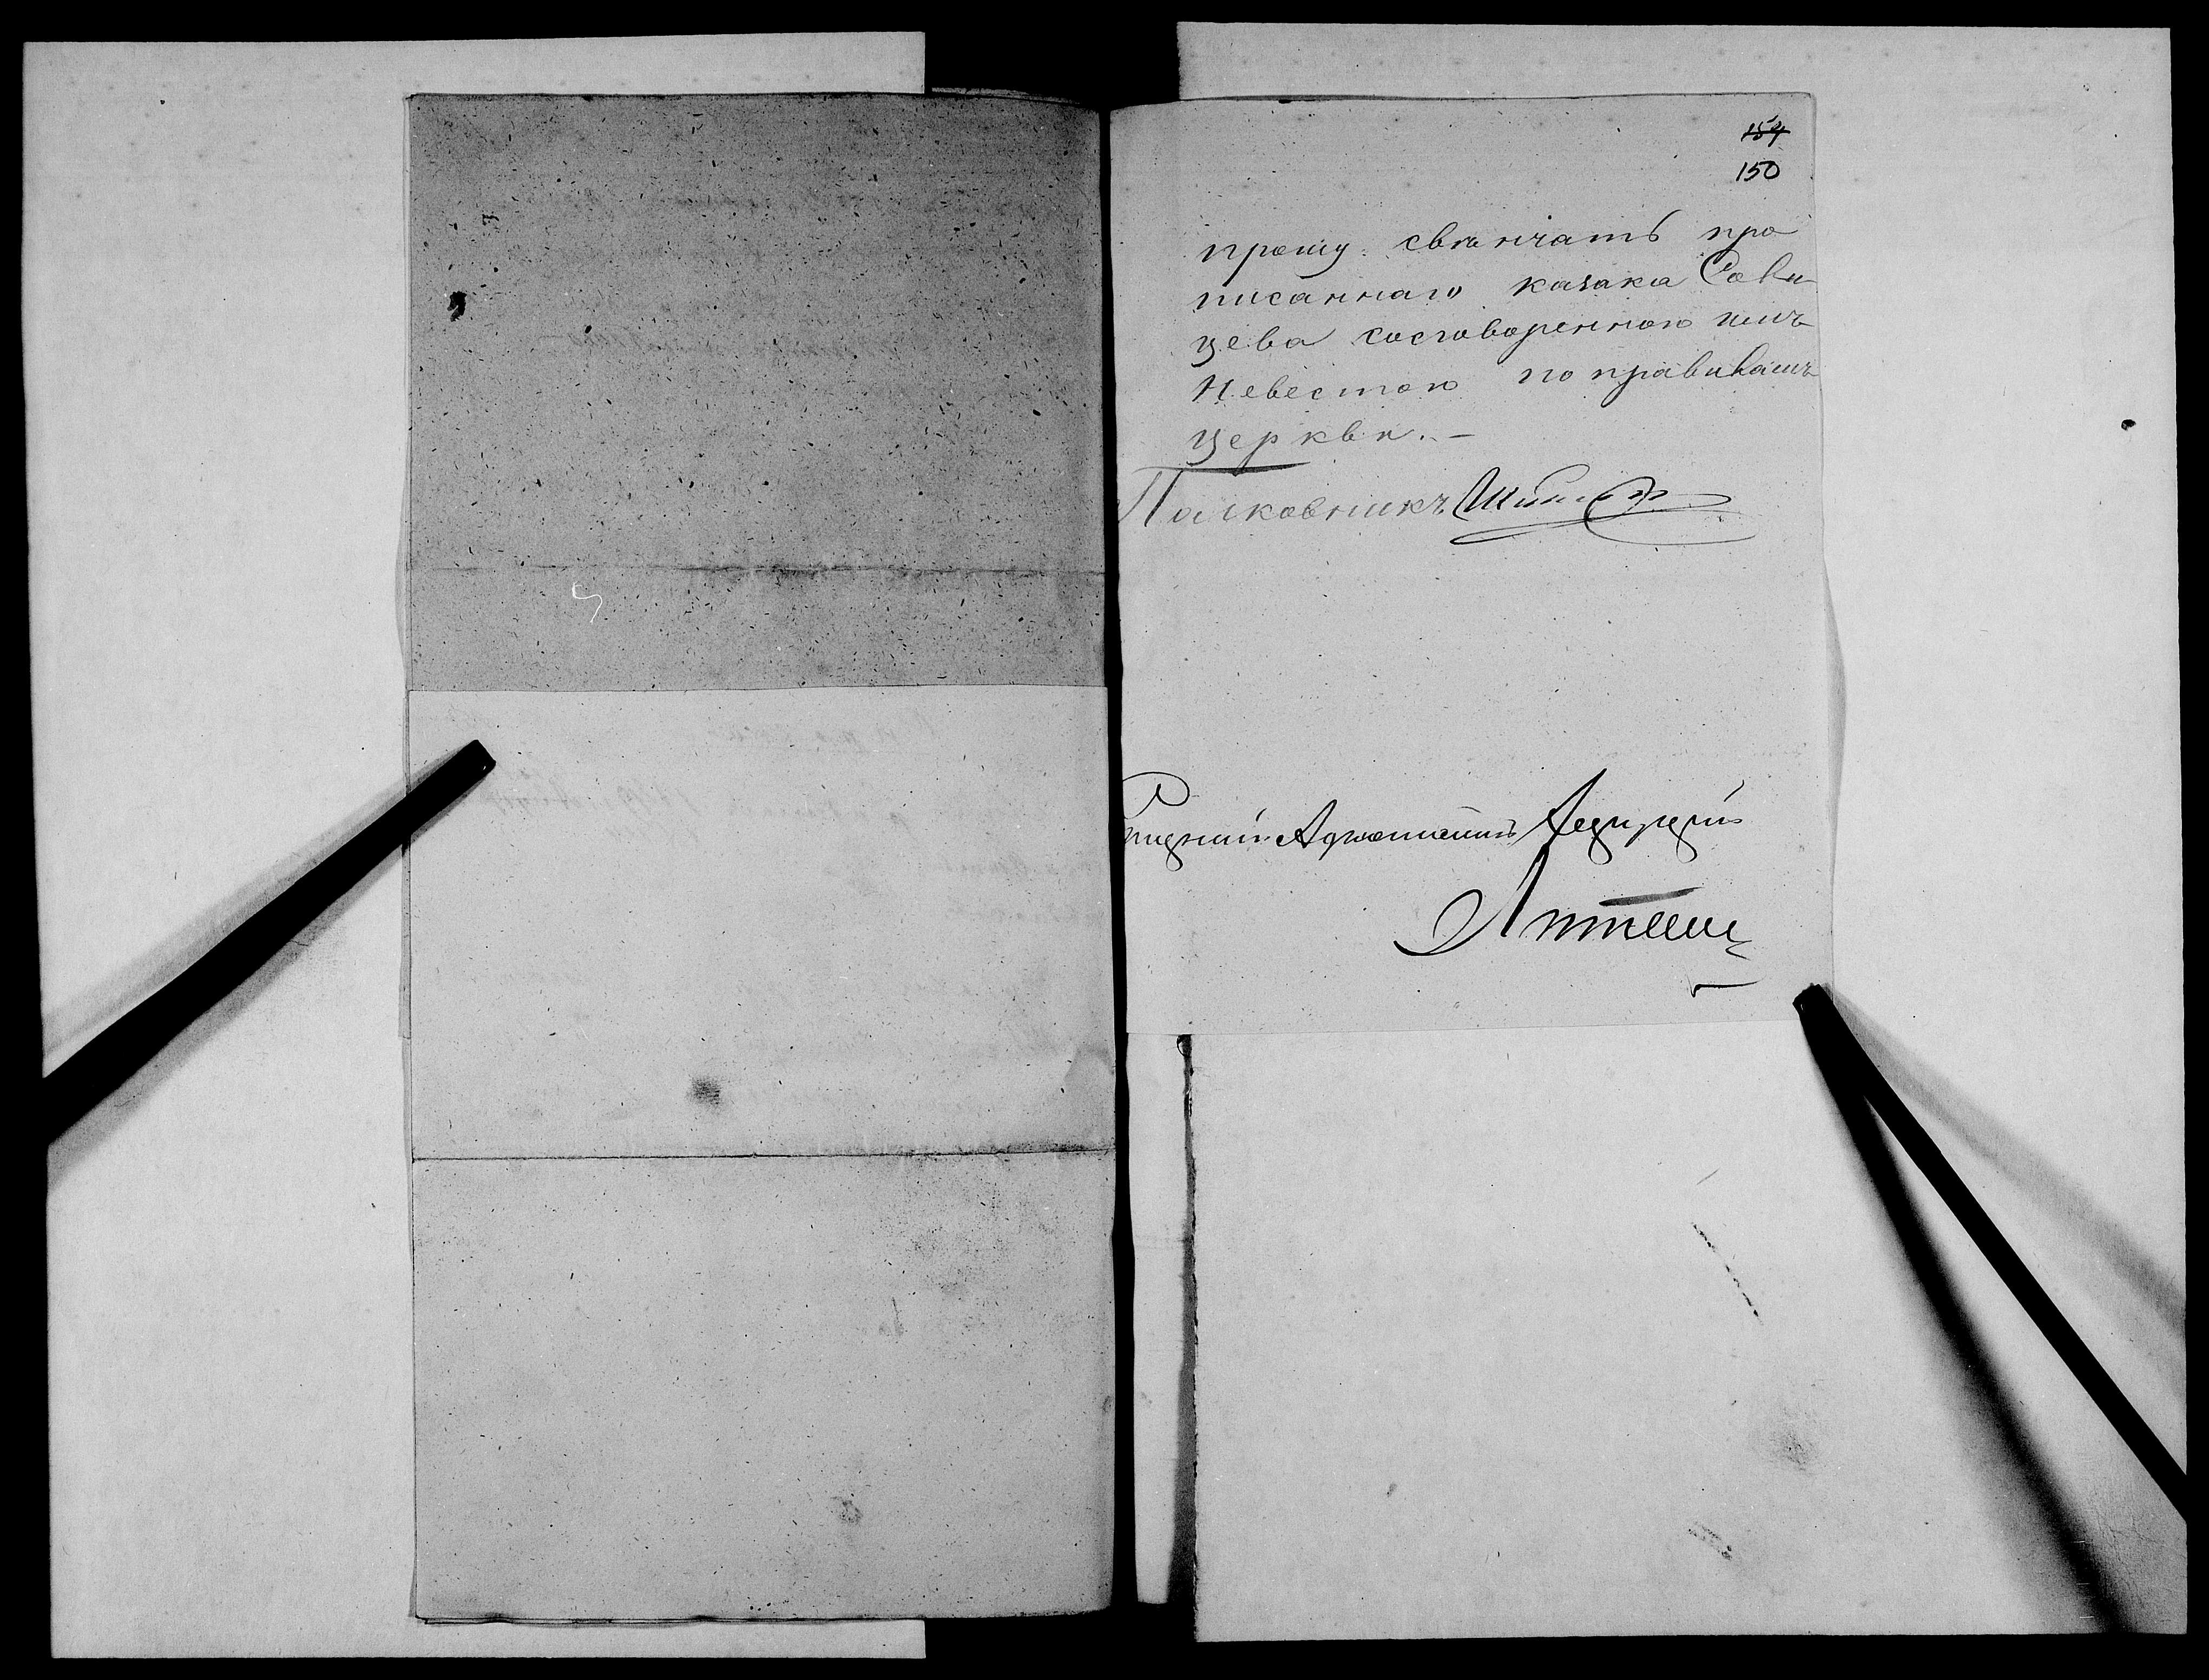 154
150
прошу свѣнчать про
писаннаго казака Сави
цева сосговоренною имъ
Невестою по правиламъ
церкви. —
Полковникъ
Адъютантъ